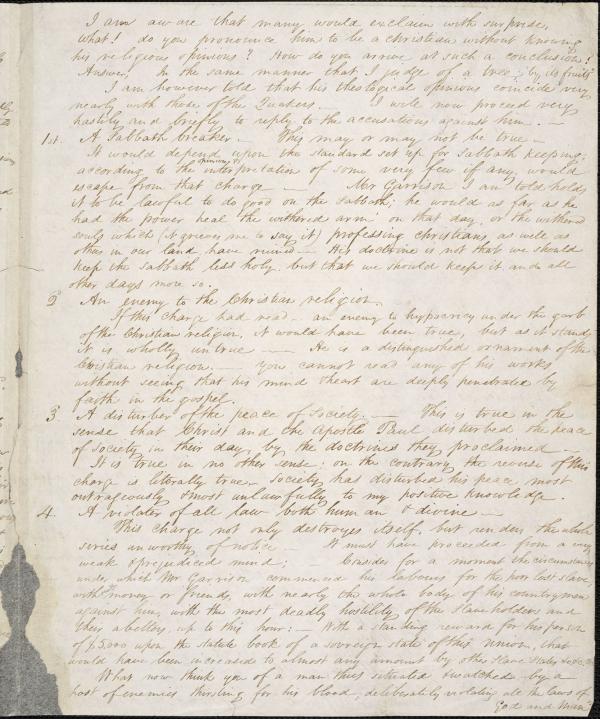 I am aware that many would exclaim with surprise,
what! do you pronounce him to be a christian without knowing
his religious opinions? How do you arrive at such a conclusion!
Answer. In the same manner that I judge of a tree; by its fruits
I am however told that his theological opinions coincide very
nearly with those of the Quakers. — I will now proceed very
hastily and briefly to reply to the accusations against him. —
1st. A Sabbath breaker — This may or may not be true —
It would depend upon the standard set up for Sabbath keeping;
according to the opinions & interpretation of some very few if any, would
escape from that charge — Mr Garrison I am told holds
it to be lawful to do good on the Sabbath; he would as far as he
had the power heal the withered arm on that day, or the withered
souls which (it grieves me to say it) professing christians as well as
others in our land, have ruined — His doctrine is not that we should
keep the Sabbath less holy, but that we should keep it and all
other days more so. —
2 An enemy to the Christian religion.
If this charge had read — an enemy to hypocrisy under the garb
of the Christian religion, it would have been true, but as it stands
it is wholly untrue — He is a distinguished ornament of the
Christian religion. — You cannot read any of his works
without seeing that his mind & heart are deeply penetrated by
faith in the gospel.
3 A disturber of the peace of Society. — This is true in the
sense that Christ and the Apostle Paul disturbed the peace
of society in their day, by the doctrines they proclaimed —
It is true in no other sense; on the contrary the reverse of this
charge is literally true — Society has disturbed his peace most
outrageously & most unlawfully to my positive knowledge.
4. A violater of all law both human & divine —
This charge not only destroyes itself, but renders the whole
series unworthy of notice — It must have proceeded from a very
weak & prejudiced mind; — Consider for a moment the circumstances
under which Mr Garrison commenced his labours for the poor lost slave
with money or friends, with nearly the whole body of his countrymen
against him, with the most deadly hostility of the Slaveholders and
their abettors, up to this hour: — With a standing reward for his person
of $5,000 upon the statute book of a sovreign state of this Union, that
would have been increased to almost any amount by other slave States
What now think you of a man thus situated & watched by a
host of enemies thirsting for his blood, deliberately violating all the laws of
God and Man?